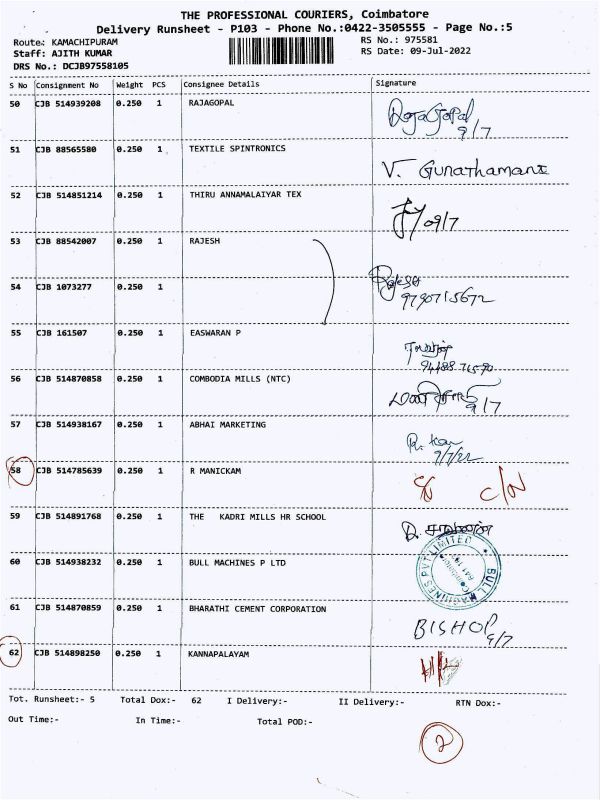 THE PROFESSIONAL COURIERS, Coimbatore
Delivery Runsheet - P103 - Phone No.:0422-3505555 - Page No.:5
Route: KAMACHIPURAM RS No.: 975581
Staff: AJITH KUMAR RS Date: 09-Jul-2022
DRS No.: DCJB97558105
S No Consignment No Weight PCS Consignee Details Signature
50 CJB 514939208 0.250 1 RAJAGOPAL RajaGopal
9/7
51 CJB 88565580 0.250 1 TEXTILE SPINTRONICS
V. Gunathamani
52 CJB 514851214 0.250 1 THIRU ANNAMALAIYAR TEX
09/7
53 CJB 88542007 0.250 1 RAJESH
54 CJB 1073277 0.250 1 Rajesh
9790715672
55 CJB 161507 0.250 1 EASWARAN P
56 CJB 514870858 0.250 1 COMBODIA MILLS (NTC)
9/7
57 CJB 514938167 0.250 1 ABHAI MARKETING
9/7/22
58 CJB 514785639 0.250 1 R MANICKAM
C/N
59 CJB 514891768 0.250 1 THE KADRI MILLS HR SCHOOL
60 CJB 514938232 0.250 1 BULL MACHINES P LTD BULL MACHINES PVT LIMITED
61 CJB 514870859 0.250 1 BHARATHI CEMENT CORPORATION
BISHOP
9/7
62 CJB 514898250 0.250 1 KANNAPALAYAM
Tot. Runsheet:- 5 Total Dox:- 62 I Delivery:- II Delivery:- RTN Dox:-
Out Time:- In Time:- Total POD:-
2